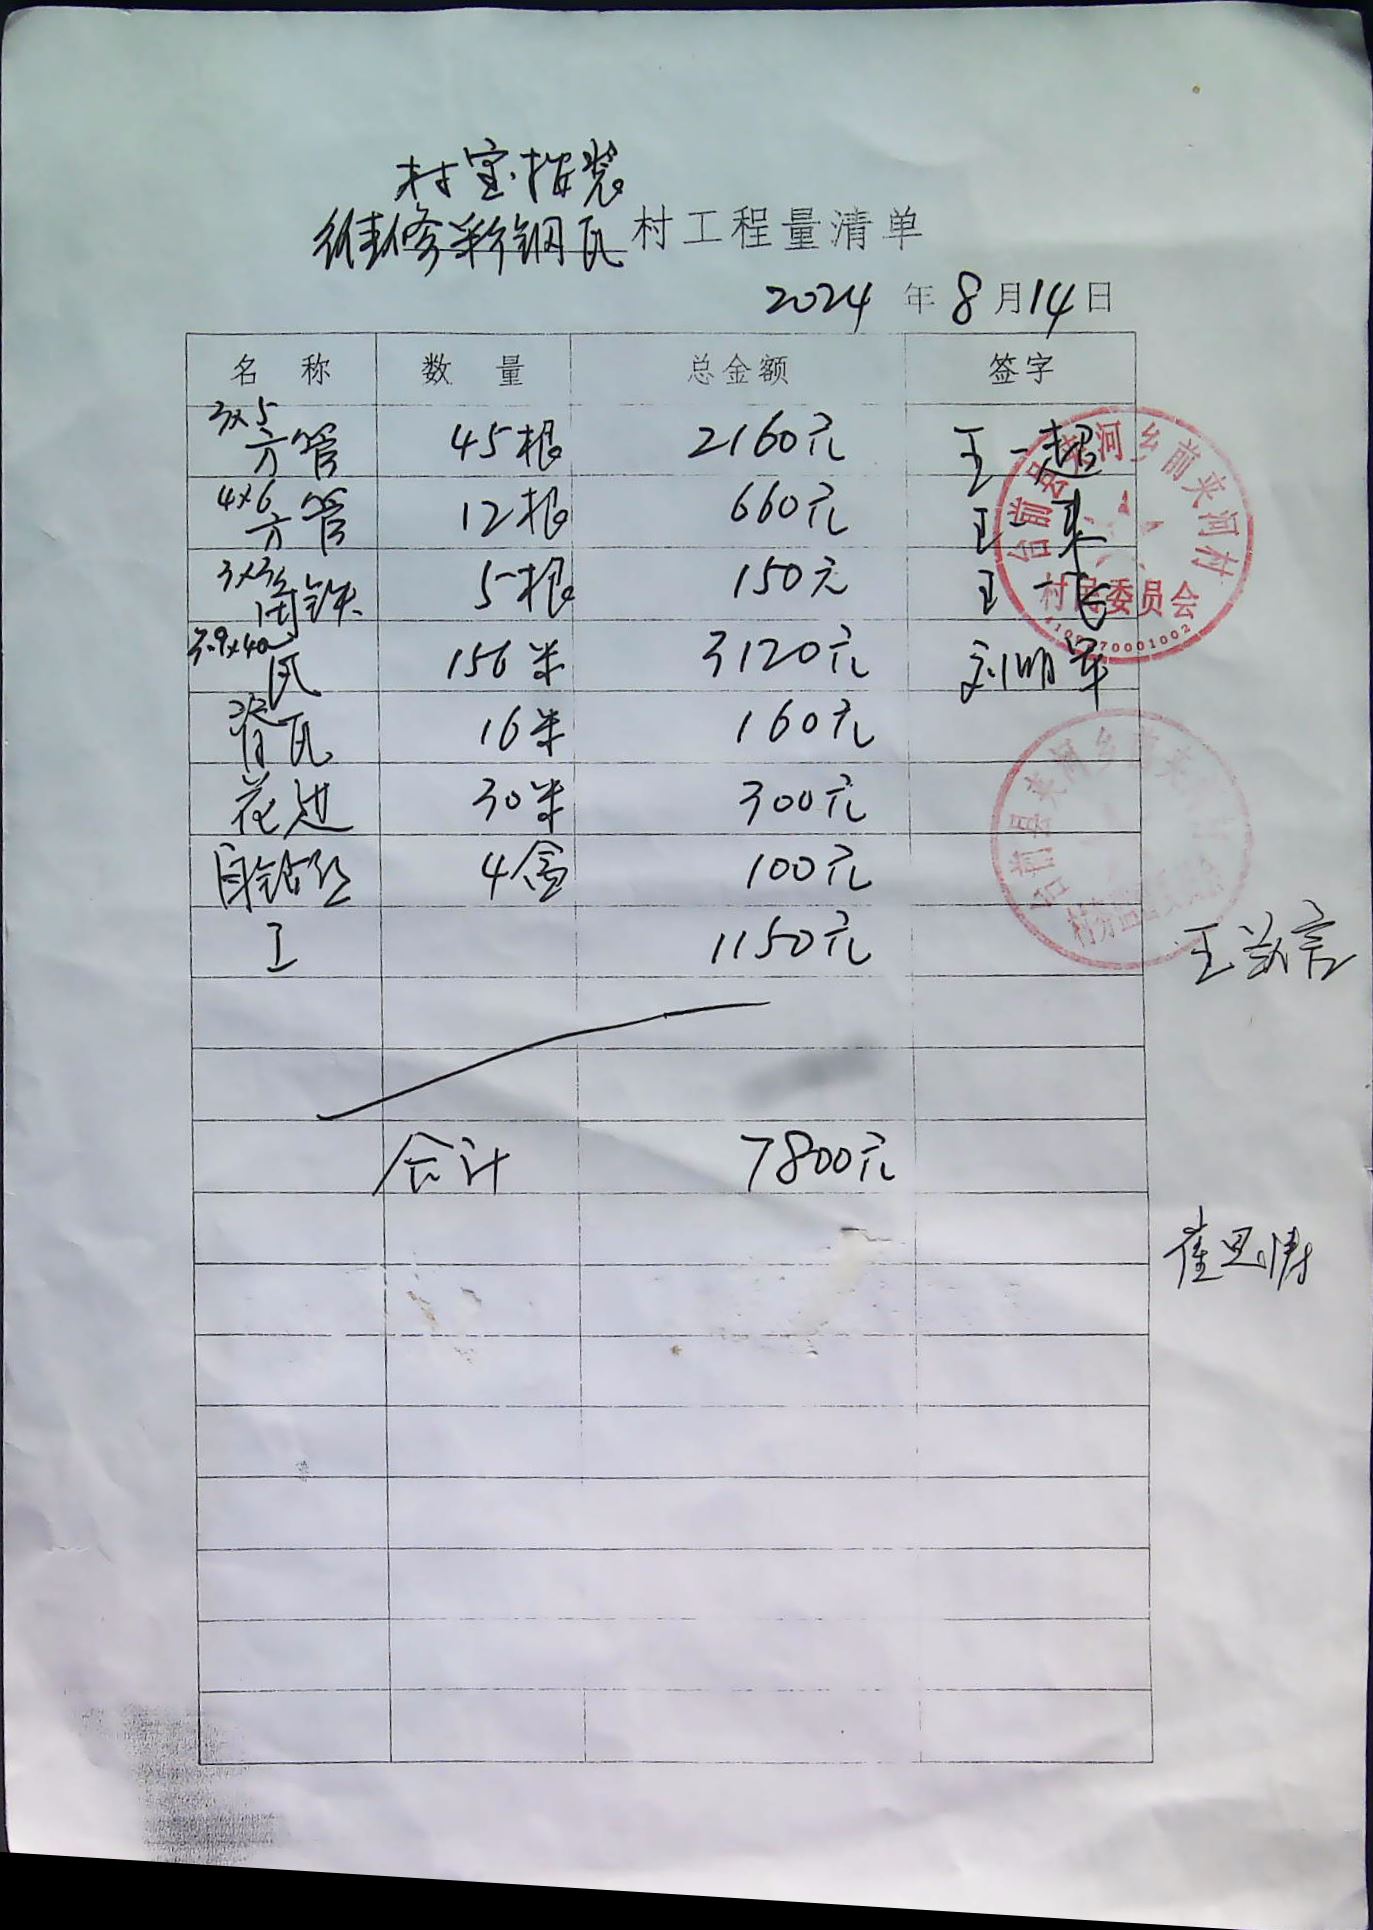 村室按装
维修彩钢瓦村工程量清单
2024年8月14日
名 称 数 量 总金额 签字
3×5方管 45根 2160元 王一超
4×6方管 12根 660元 王一来
3×3角铁 5根 150元 王一飞
3.9×40瓦 156米 3120元 刘明军
脊瓦 16米 160元
花边 30米 300元
自钻丝 4盒 100元
工 1150元
合计 7800元
台前县夹河乡前夹河村
村民委员会
台前县夹河乡前夹
村务监督委员会
王
崔思涛